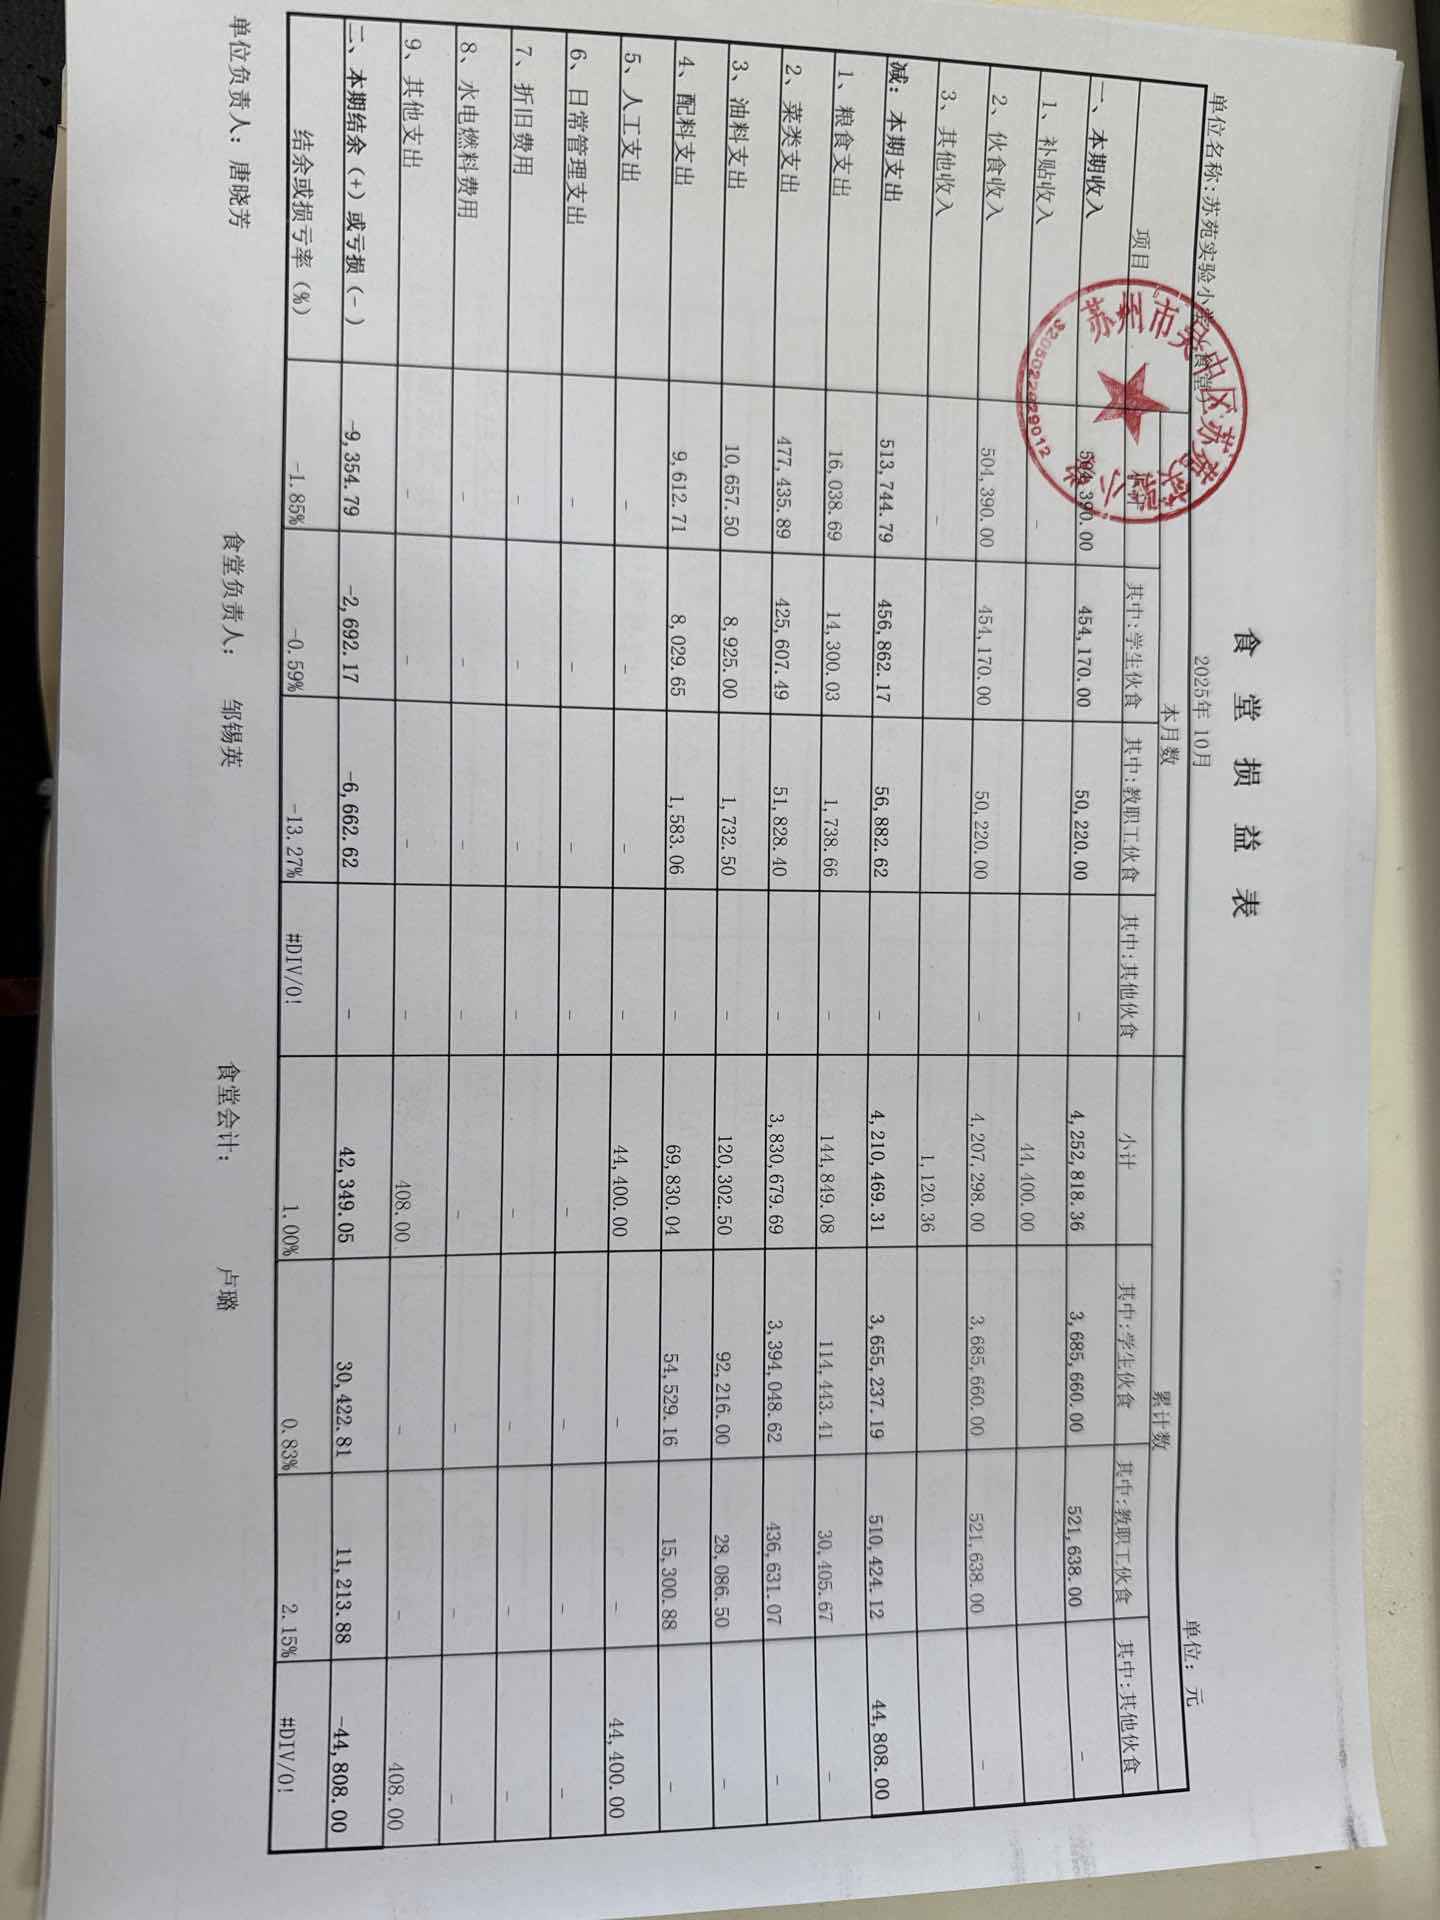 食堂损益表
单位名称:苏苑实验小学(食堂) 2025年 10月 单位：元
项目 本月数 累计数
小计 其中:学生伙食 其中:教职工伙食 其中:其他伙食 小计 其中:学生伙食 其中:教职工伙食 其中:其他伙食
一、本期收入 504,390.00 454,170.00 50,220.00 - 4,252,818.36 3,685,660.00 521,638.00 -
1、补贴收入 - 44,400.00
2、伙食收入 504,390.00 454,170.00 50,220.00 - 4,207,298.00 3,685,660.00 521,638.00 -
3、其他收入 - 1,120.36
减：本期支出 513,744.79 456,862.17 56,882.62 - 4,210,469.31 3,655,237.19 510,424.12 44,808.00
1、粮食支出 16,038.69 14,300.03 1,738.66 - 144,849.08 114,443.41 30,405.67 -
2、菜类支出 477,435.89 425,607.49 51,828.40 - 3,830,679.69 3,394,048.62 436,631.07 -
3、油料支出 10,657.50 8,925.00 1,732.50 - 120,302.50 92,216.00 28,086.50 -
4、配料支出 9,612.71 8,029.65 1,583.06 - 69,830.04 54,529.16 15,300.88 -
5、人工支出 - - - - 44,400.00 - - 44,400.00
6、日常管理支出 - - - - - - - -
7、折旧费用 - - - - - - - -
8、水电燃料费用 - - - - - - - -
9、其他支出 - - - - 408.00 - - 408.00
二、本期结余（+）或亏损（-） -9,354.79 -2,692.17 -6,662.62 - 42,349.05 30,422.81 11,213.88 -44,808.00
结余或损亏率（%） -1.85% -0.59% -13.27% #DIV/0! 1.00% 0.83% 2.15% #DIV/0!
单位负责人：唐晓芳 食堂负责人： 邹锡英 食堂会计： 卢璐
苏州市吴中区苏苑实验
3205022029012